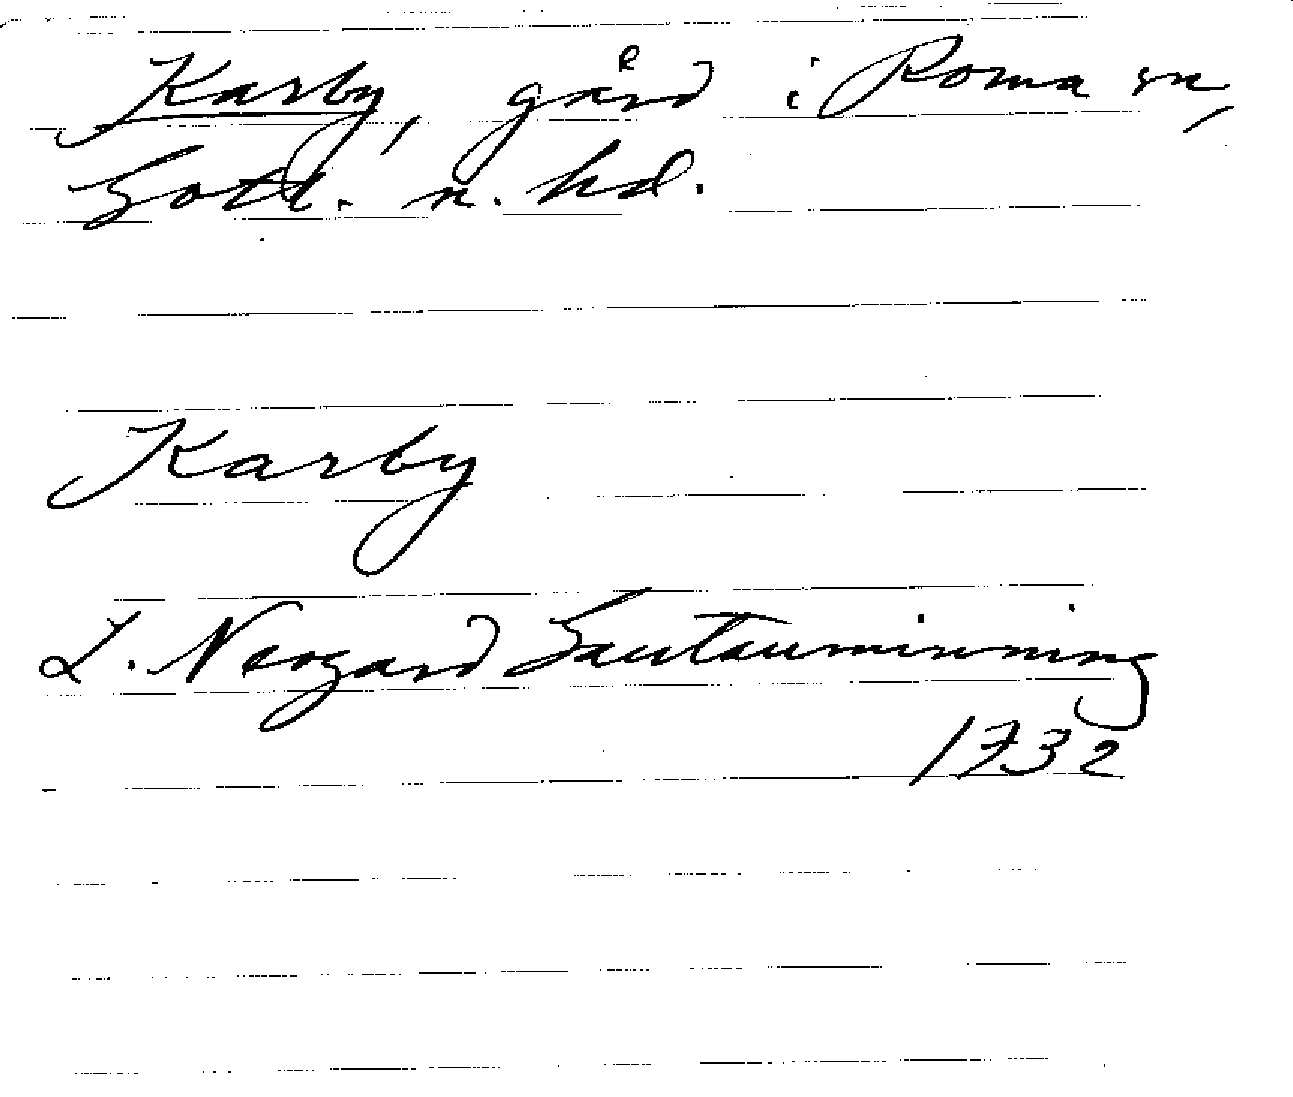 Karby, gård i Roma sn,
Gotl. n. hd.
Karby
L. Neogard Gautauminning
1732